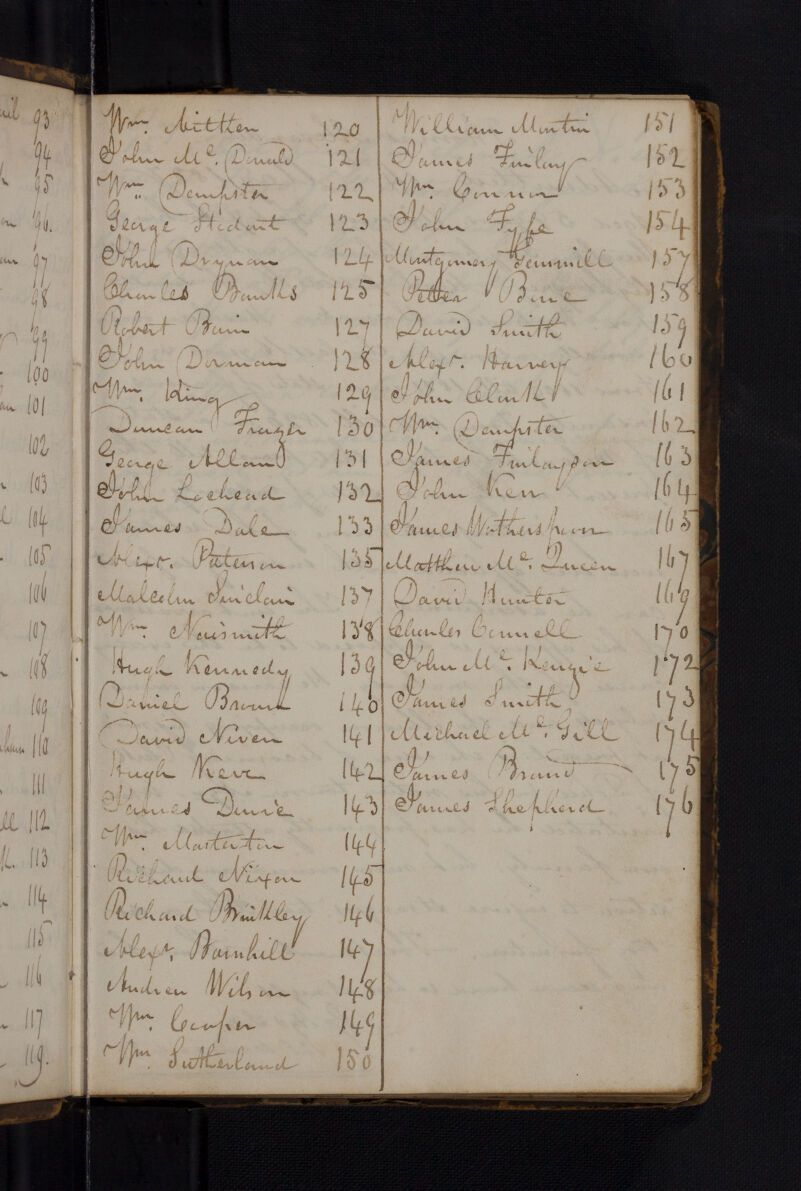 93
94
95
96.
97
98
99
100
101
102
103
104
105
106
107
108
109
110
111
112
113
114
115
116
117
119.
Wm. Aitken 120
John Mc. Donald 121
Wm. Dempster 122
George 123
John Drynan 124
Charles Banks 125
Robert Bain 127
John Dorman 128
Wm. King 129
Duncan Frazer 130
George Allan 131
John Lochead 132
James Dale 133
Alexr. Paterson 135
Malcolm Sinclair 137
Wm. Naismith 138
Hugh Kennedy 139
Daniel Brown 140
David Niven 141
Hugh 142
James 143
Wm. Masterton 144
Richard Nixon 145
Richard Brinkley 146
Alexr. Barnhill 147
Andrew Wilson 148
Wm. Cowper 149
Wm. Sutherland 150
William Martin 151
James Finlay 152
Wm. Connor 153
John Fyfe 154
Montgomery Gemmill 157
Peter 158
David Smith 159
Alexr. Harvey 160
John Clark 161
Wm. Dempster 162
James Finlayson 163
John Kerr 164
James Wotherspoon 165
Matthew Mc. Queen 167
David Hunter 169
Charles Connell 170
John Mc. Kenzie 172
James Smith 173
Michael Mc. Gill 174
James Brand 175
James Shepherd 176